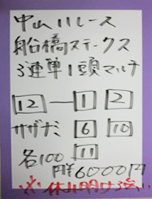 中山11レース
船橋ステークス
3連単1頭マルチ
12 — 1 2
サザナミ 6 10
各100円 11
計6000円
※休み明け強い